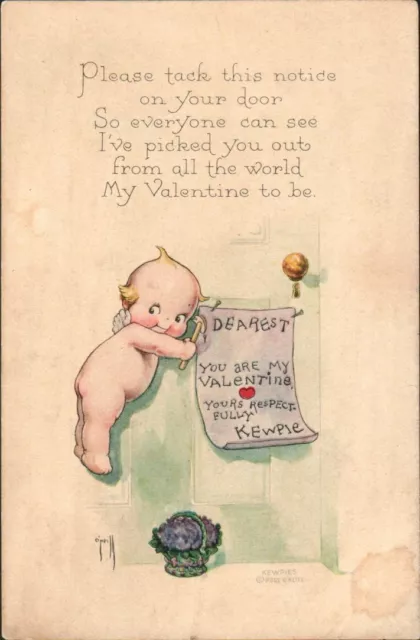 Please tack this notice
on your door
So everyone can see
I've picked you out
from all the world
My Valentine to be.
DEAREST
YOU ARE MY
VALENTINE,
YOURS RESPECT-
FULLY
KEWPIE
KEWPIES